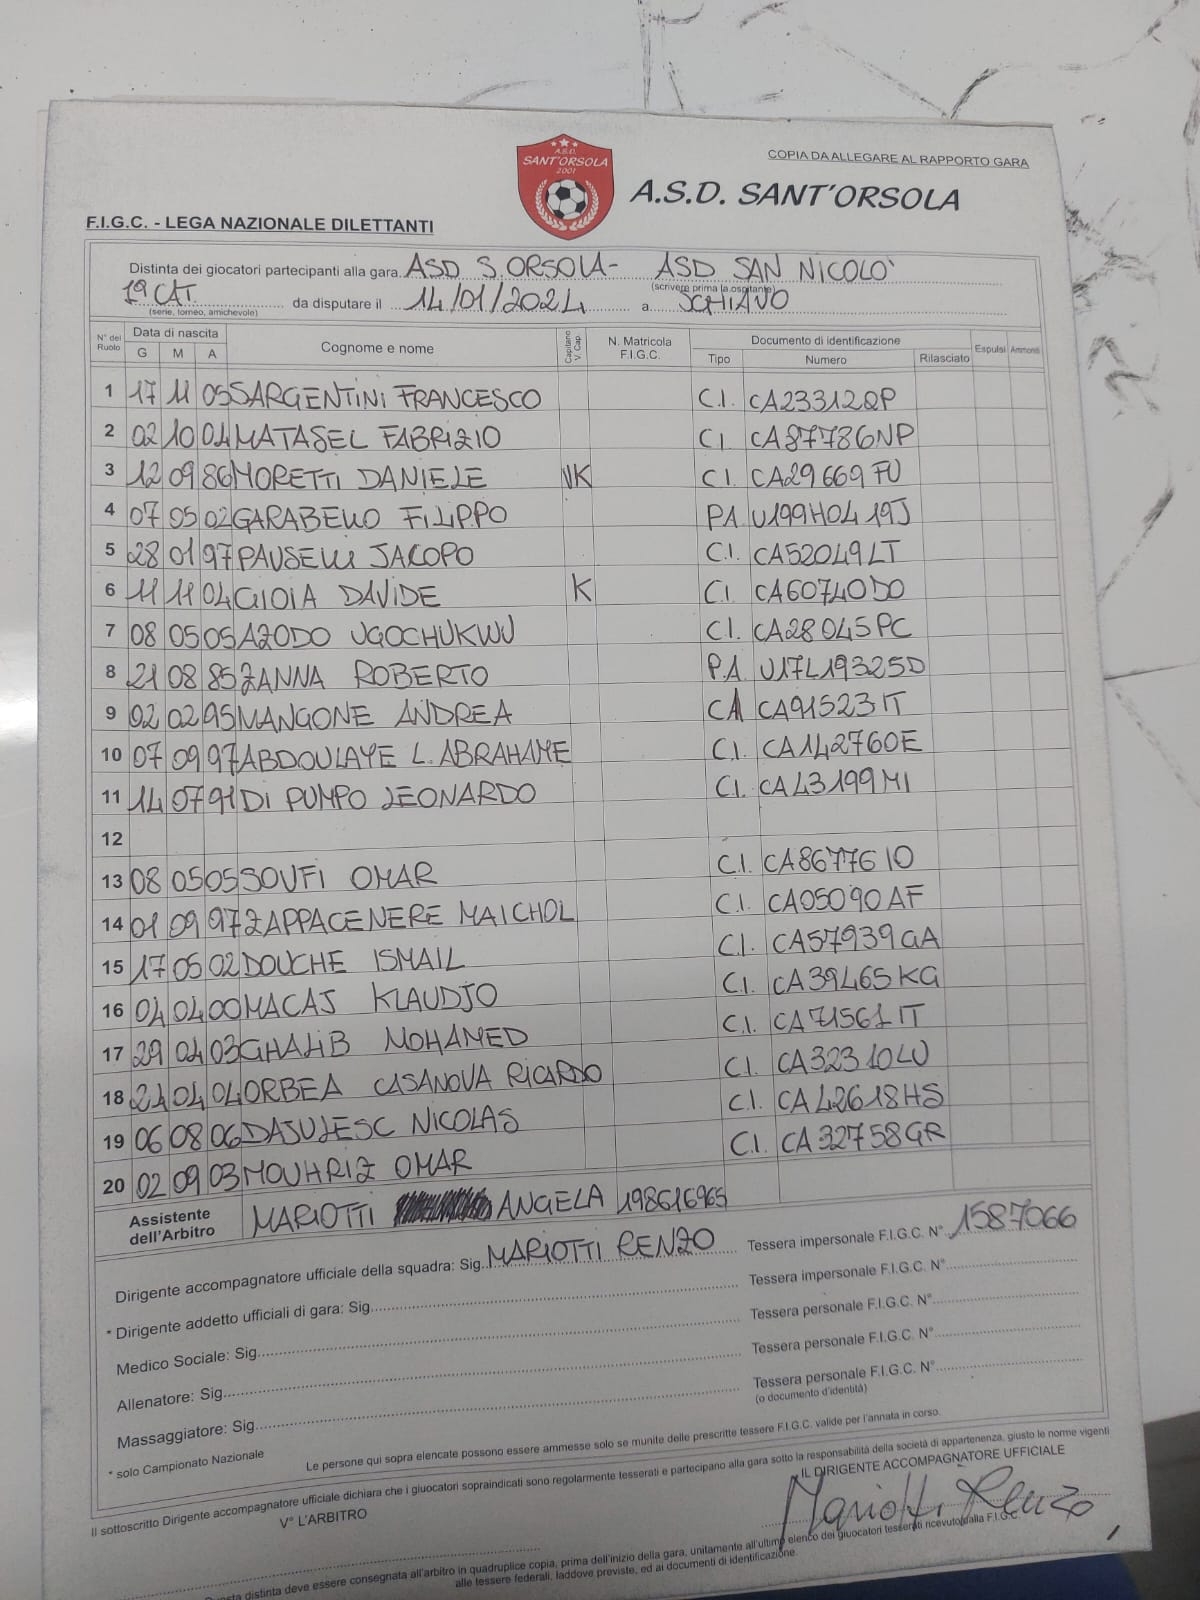 COPIA DA ALLEGARE AL RAPPORTO GARA
A.S.D.
SANT'ORSOLA
2001
A.S.D. SANT'ORSOLA
F.I.G.C. - LEGA NAZIONALE DILETTANTI
Distinta dei giocatori partecipanti alla gara. ASD S.ORSOLA - ASD SAN NICOLO'
(scrivere prima la ospitante)
1ª CAT. da disputare il 14/01/2024 a SCHIAVO
(serie, torneo, amichevole)
N° del Ruolo Data di nascita G M A Cognome e nome Capitano V. Cap. N. Matricola F.I.G.C. Documento di identificazione Tipo Numero Rilasciato Espulsi Ammoniti
1 17 11 05 SARGENTINI FRANCESCO C.I. CA23312QP
2 02 10 04 MATASEL FABRIZIO C.I. CA87786NP
3 12 09 86 MORETTI DANIELE VK C.I. CA29669FU
4 07 05 02 GARABELLO FILIPPO PA U199H0419J
5 28 01 97 PAUSELLI JACOPO C.I. CA52049LT
6 11 11 04 GIOIA DAVIDE K C.I. CA60740DO
7 08 05 05 AZODO UGOCHUKWU C.I. CA28045PC
8 21 08 85 ZANNA ROBERTO P.A U17L19325D
9 02 02 95 MANGONE ANDREA CA CA91523IT
10 07 09 97 ABDOULAYE L. ABRAHAME C.I. CA14276OE
11 14 07 91 DI PUMPO LEONARDO C.I. CA43199MI
12
13 08 05 05 SOUFI OMAR C.I. CA86776IO
14 01 09 97 ZAPPACENERE MAICHOL C.I. CA05090AF
15 17 05 02 DOUCHE ISMAIL C.I. CA57939GA
16 04 04 00 MACAJ KLAUDJO C.I. CA39465KG
17 29 04 03 GHALIB MOHAMED C.I. CA71561IT
18 21 04 04 ORBEA CASANOVA RICARDO C.I. CA32310LU
19 06 08 06 DAJULESC NICOLAS C.I. CA42618HS
20 02 09 03 MOUHRIZ OMAR C.I. CA32758GR
Assistente dell'Arbitro MARIOTTI ANGELA 198616965
Dirigente accompagnatore ufficiale della squadra: Sig. MARIOTTI RENZO Tessera impersonale F.I.G.C. N° 1587066
* Dirigente addetto ufficiali di gara: Sig. Tessera impersonale F.I.G.C. N°
Medico Sociale: Sig. Tessera personale F.I.G.C. N°
Allenatore: Sig. Tessera personale F.I.G.C. N°
Massaggiatore: Sig. Tessera personale F.I.G.C. N°
(o documento d'identità)
* solo Campionato Nazionale
Le persone qui sopra elencate possono essere ammesse solo se munite delle prescritte tessere F.I.G.C. valide per l'annata in corso.
Il sottoscritto Dirigente accompagnatore ufficiale dichiara che i giuocatori sopraindicati sono regolarmente tesserati e partecipano alla gara sotto la responsabilità della società di appartenenza, giusto le norme vigenti
V° L'ARBITRO
IL DIRIGENTE ACCOMPAGNATORE UFFICIALE
Mariotti Renzo
distinta deve essere consegnata all'arbitro in quadruplice copia, prima dell'inizio della gara, unitamente all'ultimo elenco dei giuocatori tesserati ricevuto dalla F.I.G.C.
alle tessere federali, laddove previste, ed ai documenti di identificazione.